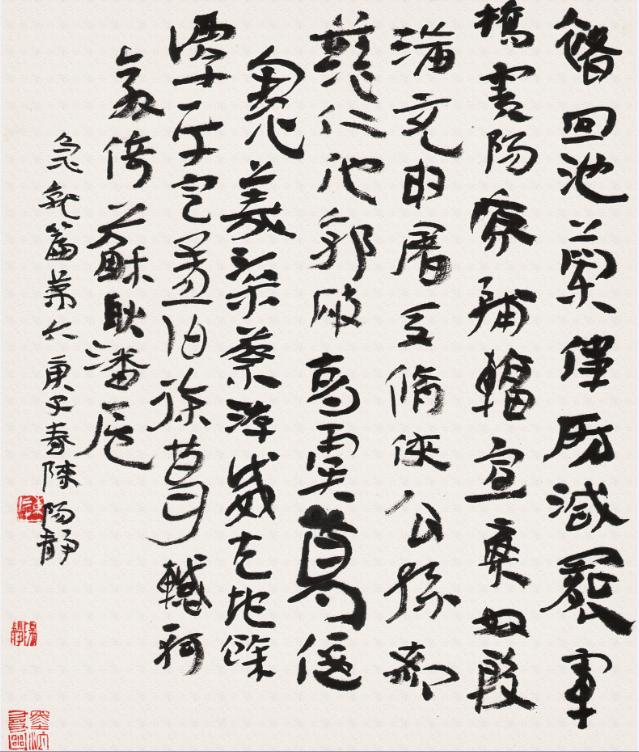 褚回池蘭偉房減罷軍
橋竇陽原輔輻宣棄奴殷
滿充申屠夏脩俠公孫都
慈仁池郭破高虞荀偃
憲義渠蔡游威左地餘
譚平定孟伯徐葛轗軻
敦倚蘇耿潘扈
急就篇第六庚子春陳陽靜